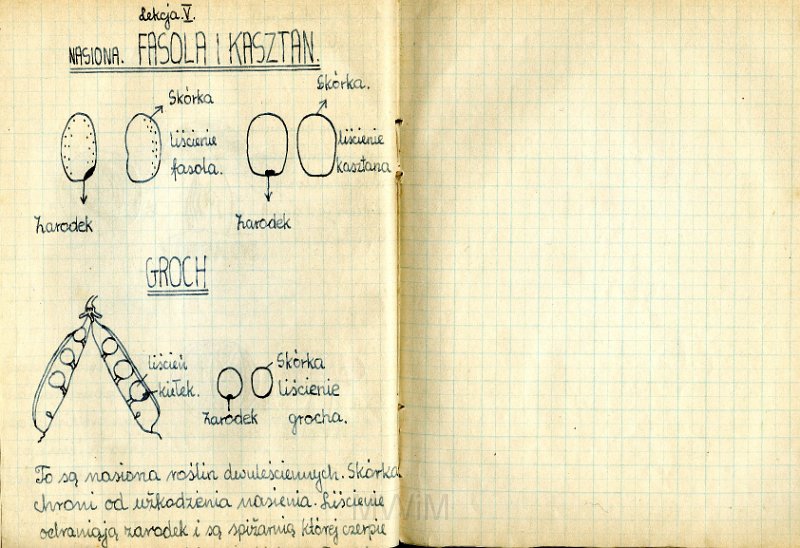 Lekcja.V.
NASIONA. FASOLA I KASZTAN.
Skórka
Skórka.
liścienie
fasola.
liścienie
kasztana
Zarodek
Zarodek
GROCH
liścień
kiełek.
Skórka
liścienie
grocha.
Zarodek
To są nasiona roślin dwuleściennych. Skórka
chroni od użkodzenia nasienia. Liścienie
ochraniają zarodek i są spiżarnią której czerpie
MWiM